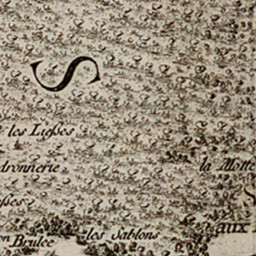 S
les Liesses
dronnerie
la Motte
esses
S
aux
on Brulee
les Sablons